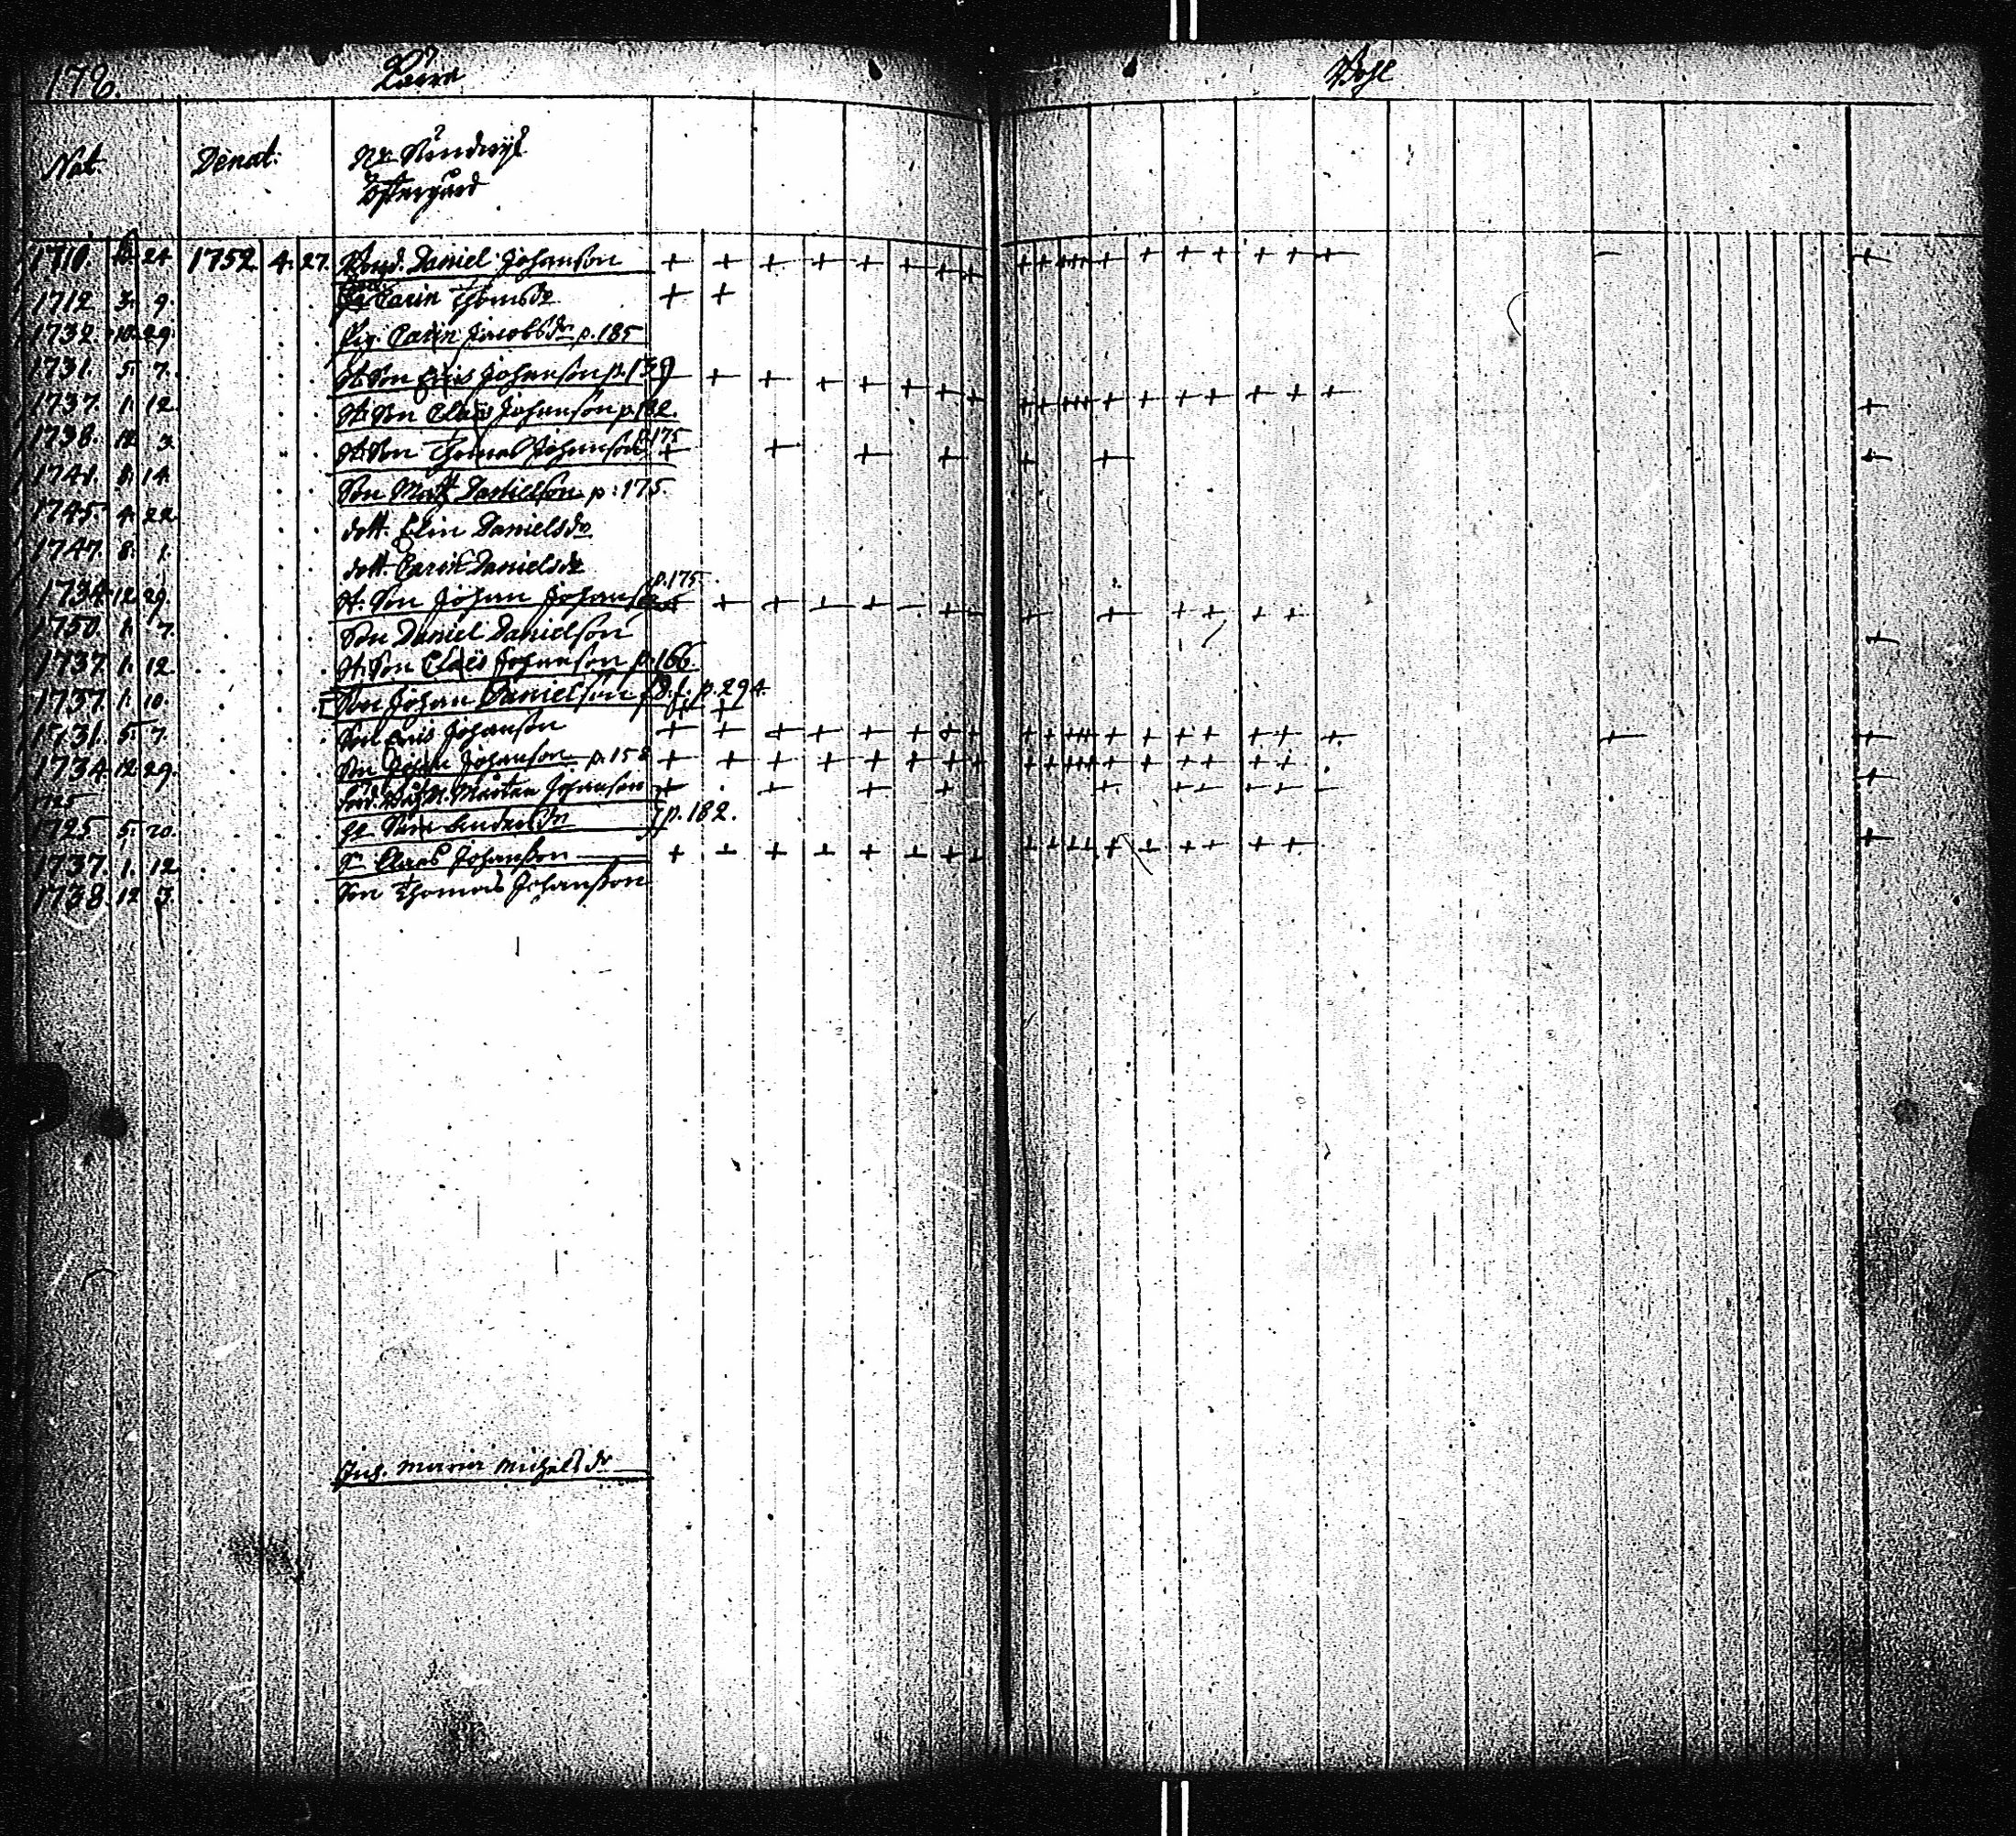 178.
Nat. Denat:
Östergård
1710. 24. 1752. 4. 27. Daniel Johanson
1712 3. 9. Carin Thomsdr
1732 10. 29. Pig. Carin Jacobsdr p. 185
1731. 5. 7. St. Son Johanson p. 139
1737. 1. 12. St. Son Claës Johanson p. 182.
1738. 12 3. St. Son Thomas Johanson p. 175
1741. 8. 14. Son Matt Danielson p: 175.
1745. 4. 22. dott. Elin Danielsdr
1747. 8. 1. dott. Carin Danielsdr
1734 12. 29. St. Son Johan Johanson p. 175
1750. 1. 7. Son Daniel Danielson
1737. 1. 12. St. Son Claës Johanson p. 166.
1737. 1. 10. Son Johan Danielson p. 294.
1731. 5. 7. Son Johanson
1734. 12 29. Son Johan Johanson p. 158
1725 Mårten Johanson
1725 5. 20. Andersdr p. 182.
1737. 1. 12. Sn Claes Johanßon
1738. 12 3. Son Thomas Johanßon
Maria Michelsdr